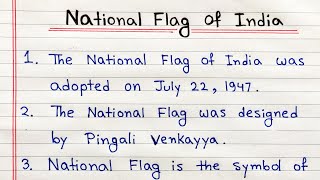 National Flag of India
1. The National Flag of India was
adopted on July 22, 1947.
2. The National Flag was designed
by Pingali Venkayya.
3. National Flag is the symbol of